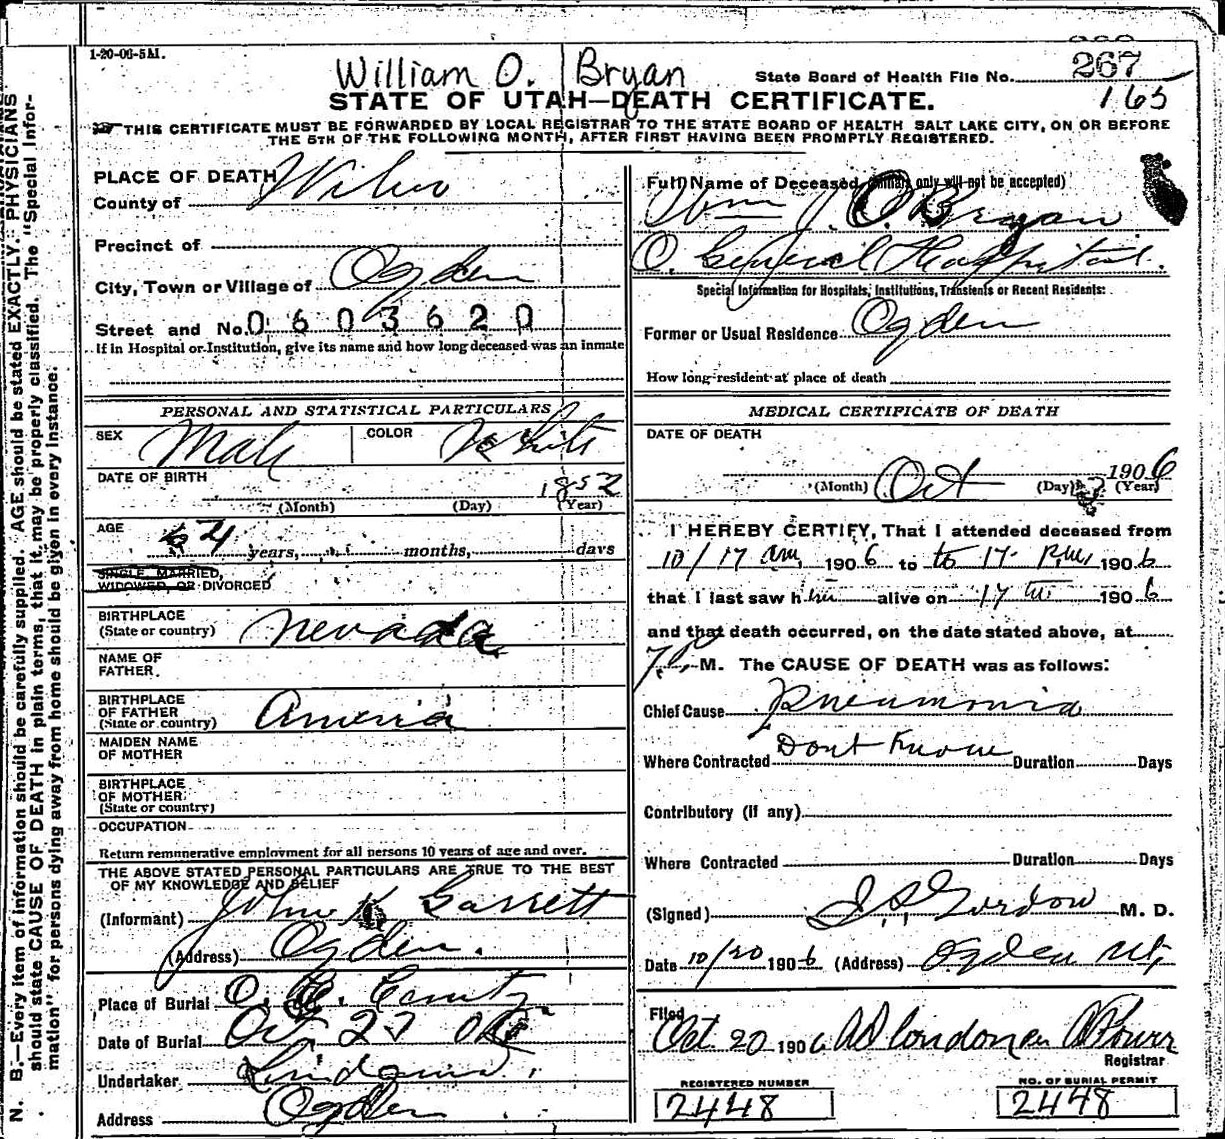 1-20-06-5M.
William O. Bryan
State Board of Health File No. 267
165
STATE OF UTAH—DEATH CERTIFICATE.
THIS CERTIFICATE MUST BE FORWARDED BY LOCAL REGISTRAR TO THE STATE BOARD OF HEALTH SALT LAKE CITY, ON OR BEFORE
THE 5TH OF THE FOLLOWING MONTH, AFTER FIRST HAVING BEEN PROMPTLY REGISTERED.
N. B.—Every item of information should be carefully supplied. AGE should be stated EXACTLY. PHYSICIANS
should state CAUSE OF DEATH in plain terms, that it may be properly classified. The "Special Infor-
mation" for persons dying away from home should be given in every instance.
PLACE OF DEATH
County of
Precinct of
City, Town or Village of Ogden
Street and No. 0603620
If in Hospital or Institution, give its name and how long deceased was an inmate
PERSONAL AND STATISTICAL PARTICULARS
SEX Male COLOR White
DATE OF BIRTH 1852
(Month) (Day) (Year)
AGE 54 years, months, days
SINGLE, MARRIED,
WIDOWED, OR DIVORCED
BIRTHPLACE
(State or country) Nevada
NAME OF
FATHER.
BIRTHPLACE
OF FATHER
(State or country) America
MAIDEN NAME
OF MOTHER
BIRTHPLACE
OF MOTHER
(State or country)
OCCUPATION
Return remunerative employment for all persons 10 years of age and over.
THE ABOVE STATED PERSONAL PARTICULARS ARE TRUE TO THE BEST
OF MY KNOWLEDGE AND BELIEF
(Informant) John K Garrett
(Address) Ogden.
Place of Burial O.
Date of Burial Oct
Undertaker
Address Ogden
Full Name of Deceased (Initials only will not be accepted)
Wm J. O. Bryan
O. General Hospital.
Special Information for Hospitals, Institutions, Transients or Recent Residents:
Former or Usual Residence Ogden
How long resident at place of death
MEDICAL CERTIFICATE OF DEATH
DATE OF DEATH
Oct 1906
(Month) (Day) (Year)
I HEREBY CERTIFY, That I attended deceased from
10/17 am 1906 to to 17 P.M. 1906
that I last saw him alive on 17 1906
and that death occurred, on the date stated above, at
M. The CAUSE OF DEATH was as follows:
Chief Cause Pneumonia
Where Contracted Dont Know Duration Days
Contributory (if any)
Where Contracted Duration Days
(Signed) Gordon M. D.
Date 10/20 1906 (Address) Ogden Ut,
Filed
Oct. 20 1906
Registrar
REGISTERED NUMBER
2448
NO. OF BURIAL PERMIT
2448